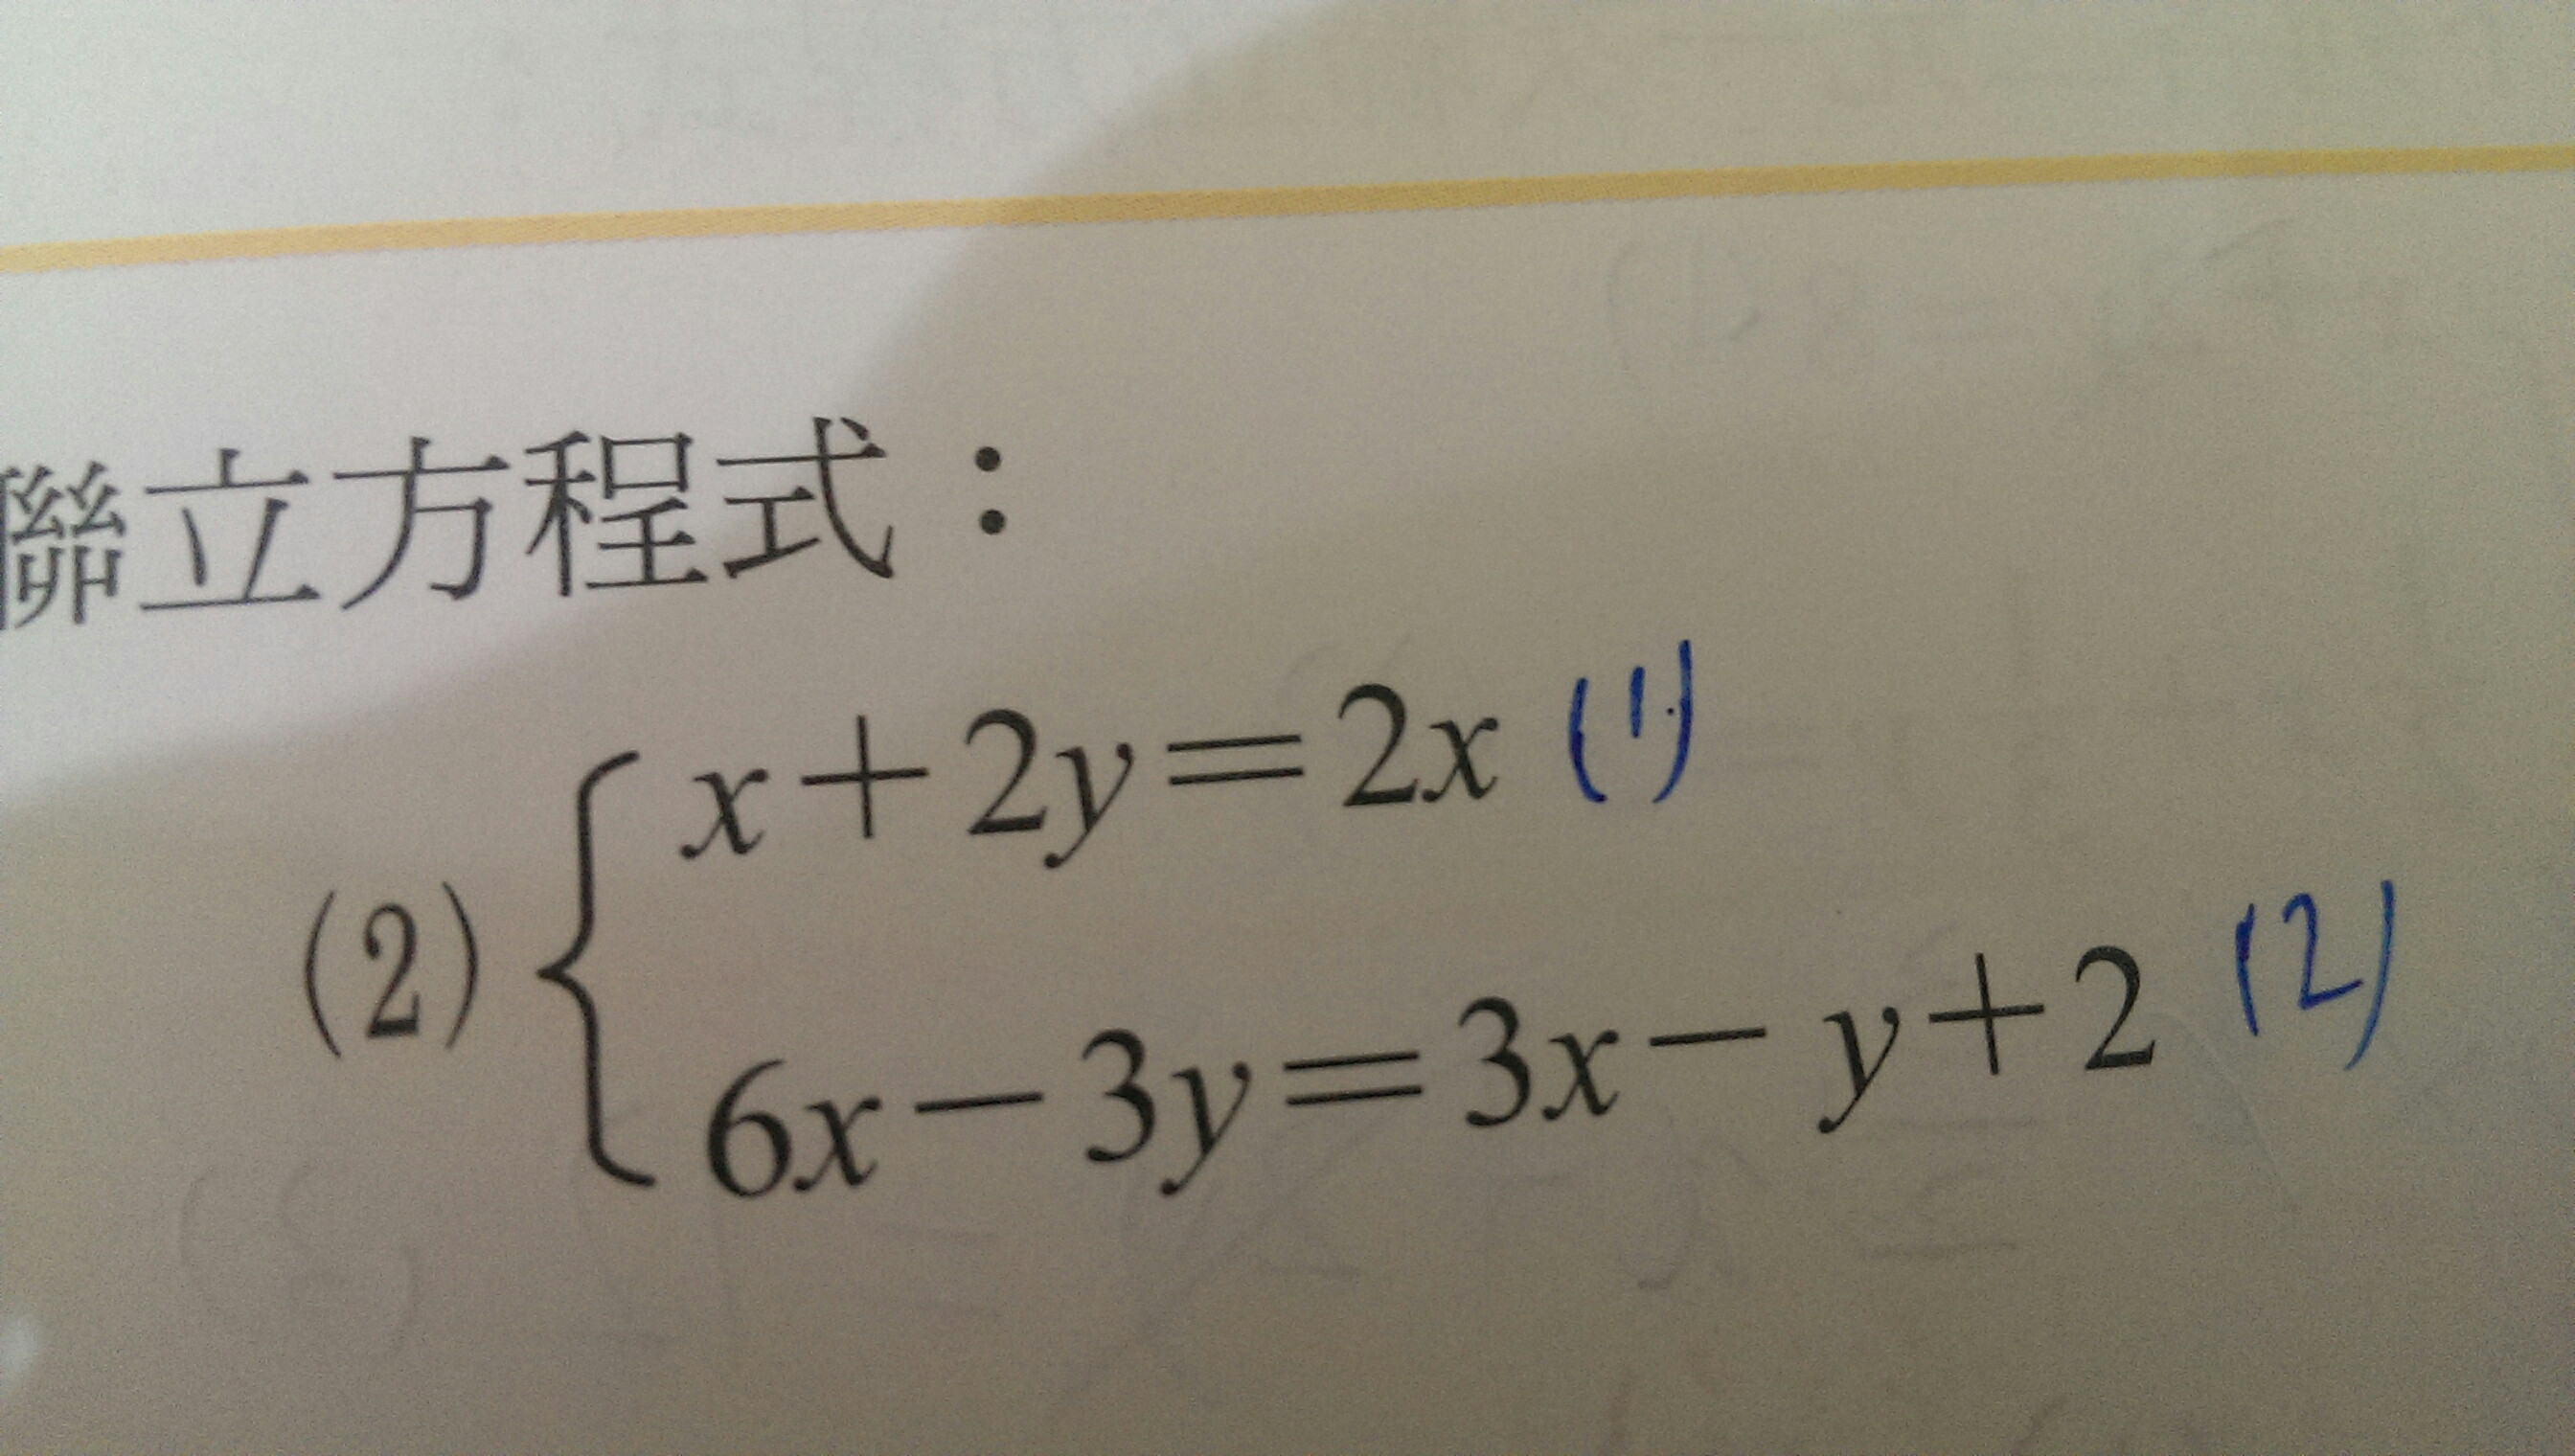 聯立方程式：
x+2y=2x (1)
(2)
6x-3y=3x-y+2 (2)